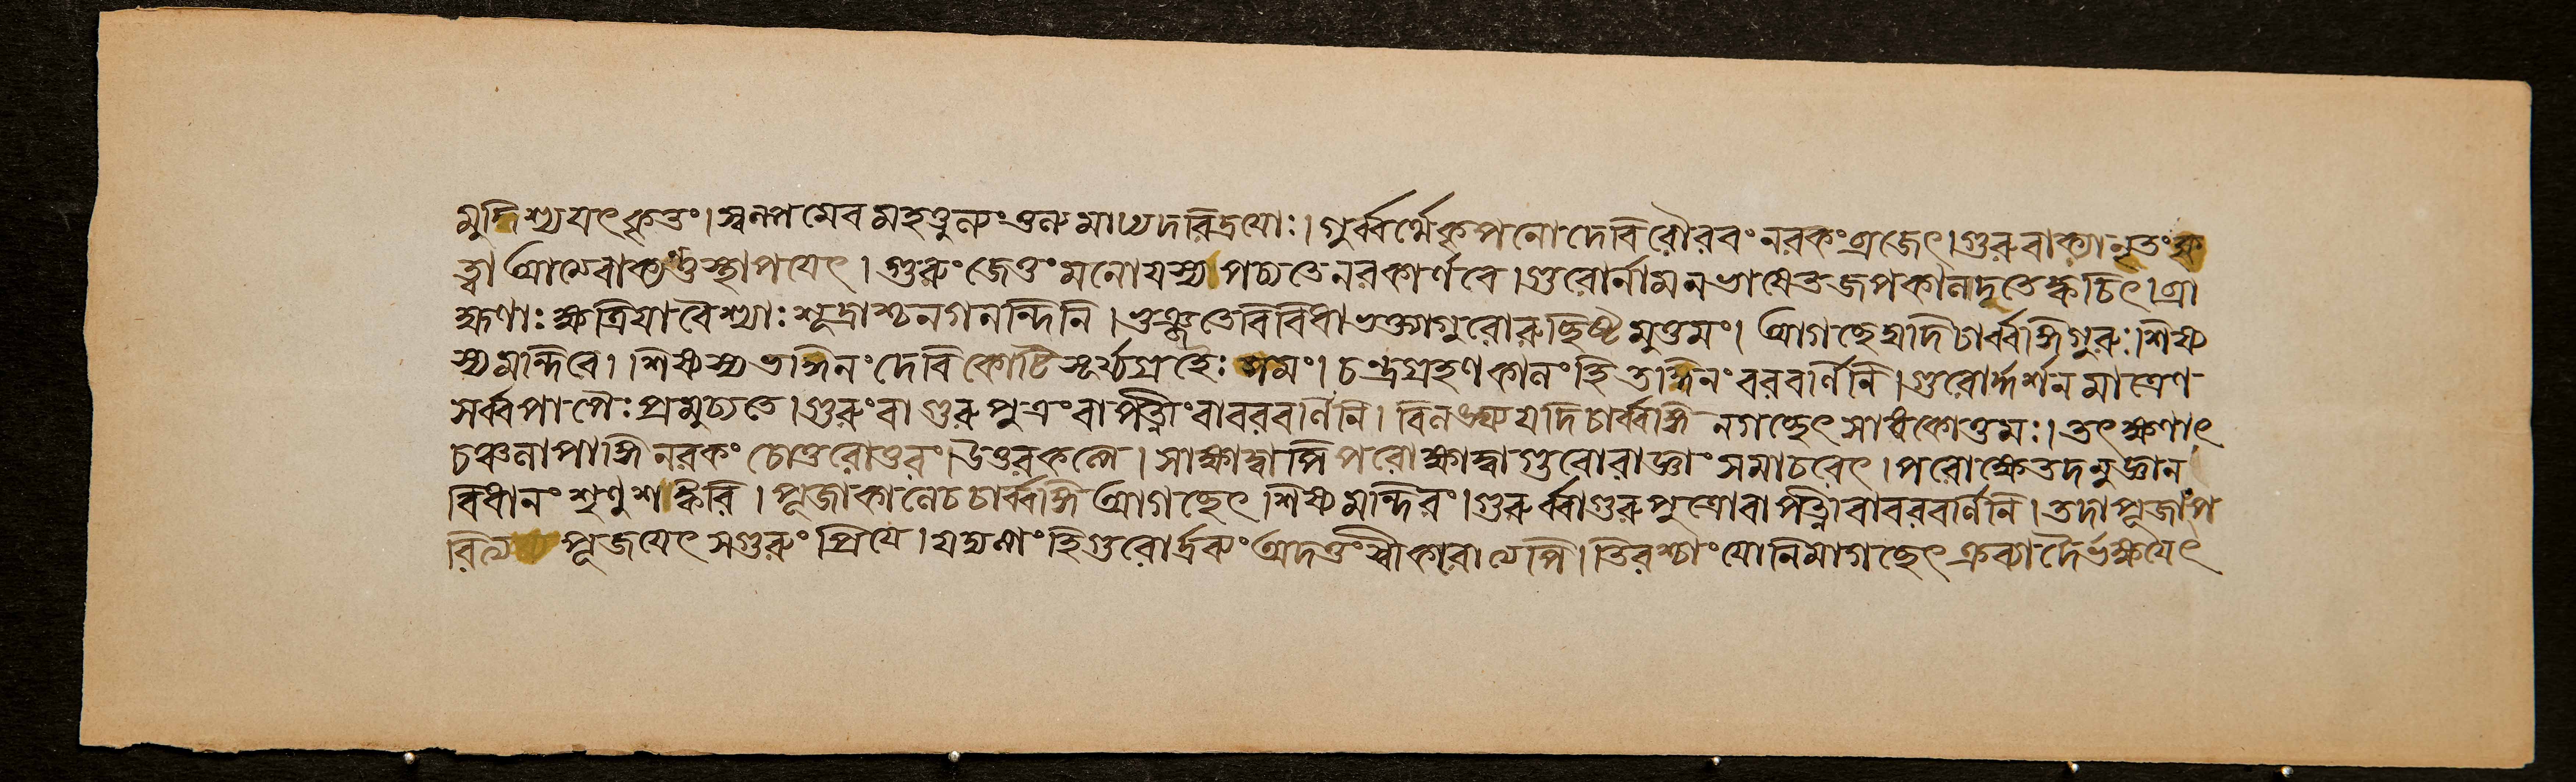 মুদ্দিশ্যযৎকৃতং। স্বল্পমেবমহত্তুল্যং তুল্যমাঢ্যদরিদ্রযোঃ। গুর্ব্বর্থেকৃপনোদেবিরৌরবংনরকংব্রজেৎ। গুরুবাক্যানৃতংকৃ
ত্বা আত্মবাক্যন্তুস্থাপযেৎ। গুরুংজেতুংমনোযস্যপচ্যতেনরকার্ণবে। গুরোর্নামনভাষেতজপকালদৃতেক্বচিৎ। ব্রা
হ্মণাঃ ক্ষত্রিযাবৈশ্যাঃ শূদ্রাশ্চনগনন্দিনি। ভুঞ্জতেবিবিধাভক্ত্যাগুরোরুচ্ছিষ্টমুত্তমং। আগচ্ছেদ্যদিচার্ব্বঙ্গিগুরুঃ শিষ্য
স্যমন্দিরে। শিষ্যস্যতদ্দিনংদেবিকোটিসূর্য্যগ্রহৈঃ সমং। চন্দ্রগ্রহণকালংহিতদ্দিনংবরবর্ণিনি। গুরোর্দ্দর্শনমাত্রেণ
সর্ব্বপাপৈঃ প্রমুচ্যতে। গুরুংবাগুরুপুত্রংবাপত্নীংবাবরবর্ণিনি। বিলঙ্ঘ্যযদিচার্ব্বঙ্গিনগচ্ছেৎসাধকোত্তমঃ। তৎক্ষণাৎ
চঞ্চলাপাঙ্গিনরকংচোত্তরোত্তরং। উত্তরকল্পে। সাক্ষাদ্বাপিপরোক্ষাদ্বাগুরোরাজ্ঞাংসমাচরেৎ। পরোক্ষেতদনুজ্ঞান
বিধানংশৃণুশঙ্করি। পূজাকালেচচার্ব্বঙ্গি আগচ্ছেৎশিষ্যমন্দিরং। গুরুর্ব্বাগুরুপুত্রোবাপত্নীবাবরবর্ণিনি। তদাপূজাংপ
রিত্যজ্য পূজযেৎসগুরুংপ্রিযে। যদ্যল্পংহিগুরোর্দ্রব্যং অদত্তংস্বীকরোত্যপি। তিরশ্চাংযোনিমাগচ্ছেৎক্রব্যাদৈর্ভক্ষযেৎ